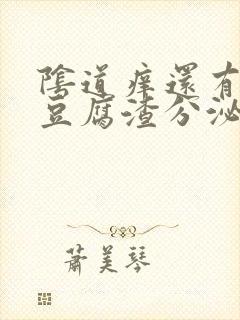 陰道痒還有
豆腐渣分泌
蕭美琴